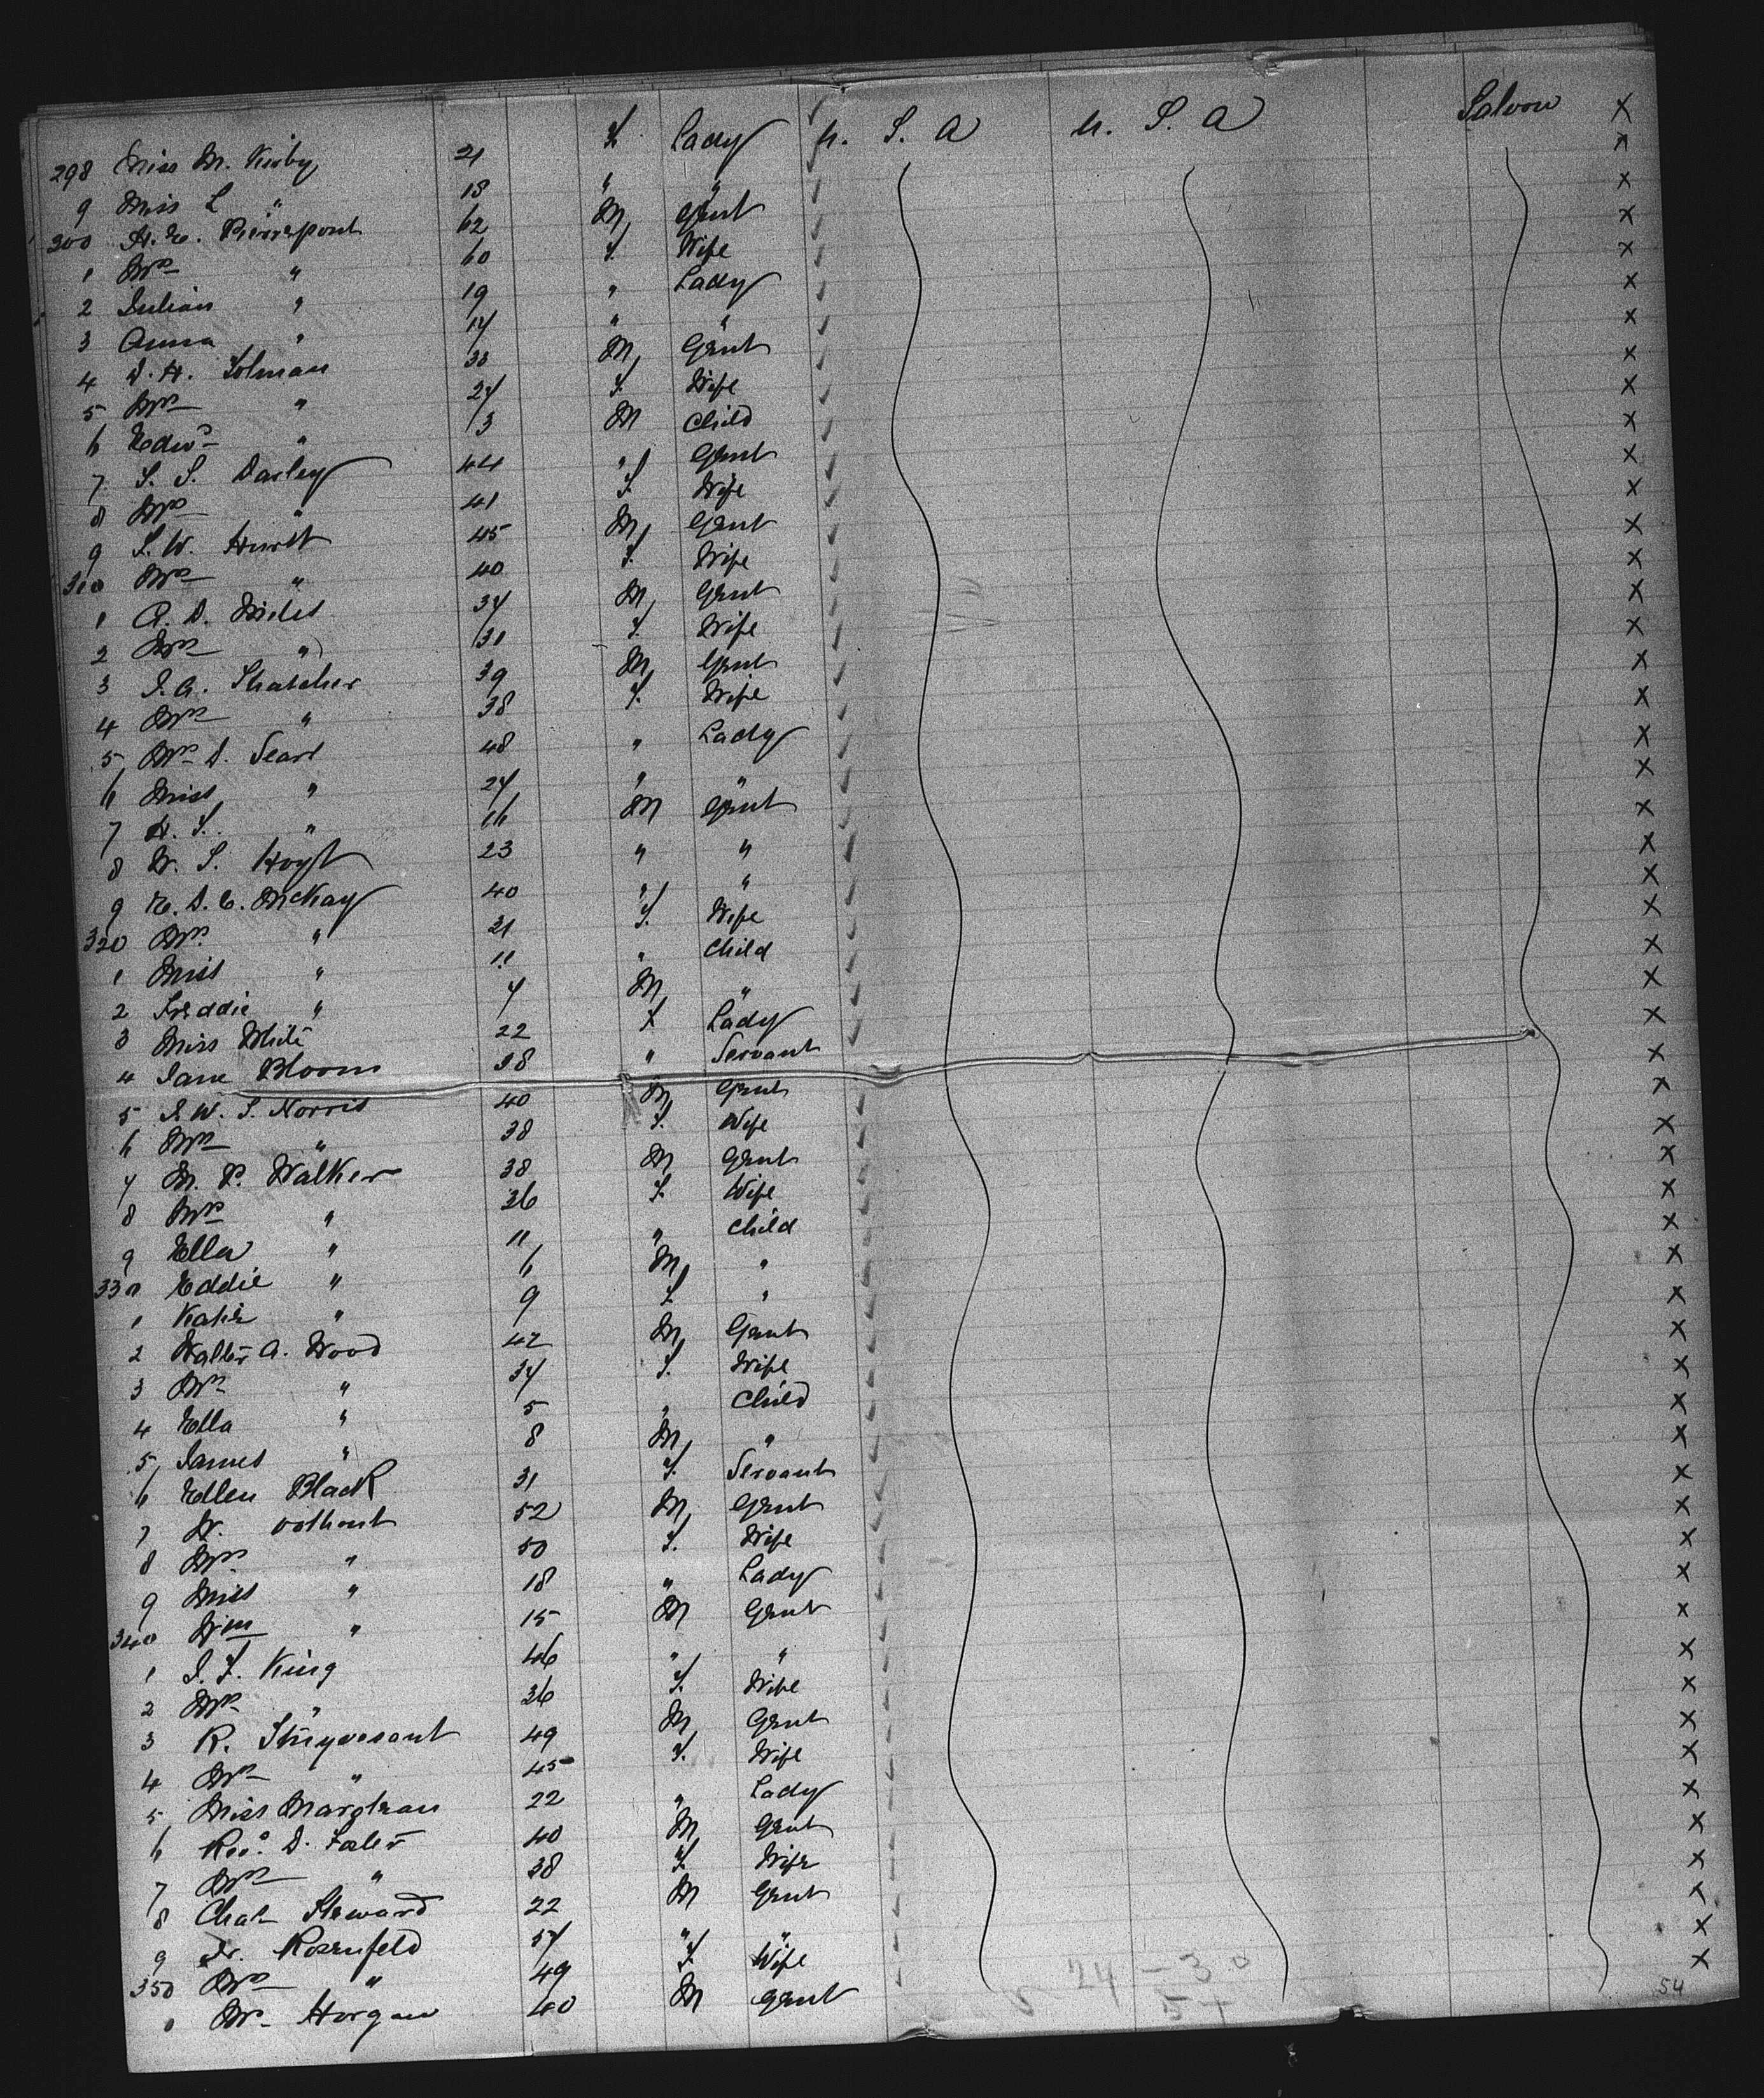 298 Miss M. Kirby 21 f. Lady U. S. A U. S. A Saloon X
9 Miss L " 18 " " X
300 H. E. Pierrepont 62 M Gent X
1 Mrs " 60 f. Wife X
2 Julian " 19 " Lady X
3 Anna " 17 " " X
4 D. H. Solman 33 M Gent X
5 Mrs " 27 f. Wife X
6 Edwd " 3 M Child X
7 S. S. Darley 44 " Gent X
8 Mrs " 41 f. Wife X
9 S. W. Hurtt 45 M Gent X
310 Mrs " 40 f. Wife X
1 A. D. Miles 37 M Gent X
2 Mrs " 31 f. Wife X
3 J. A. Thatcher 39 M Gent X
4 Mrs " 38 f. Wife X
5 Mrs D. Searl 48 " Lady X
6 Miss " 27 " " X
7 " 16 M Gent X
8 W. S. Hoyt 23 " " X
9 E. D. C. McKay 40 " " X
320 Mrs " 31 f. Wife X
1 Miss " 11 " Child X
2 Freddie " 7 M " X
3 Miss White 22 f Lady X
4 Jane Bloom 38 " Servant X
5 J. W. S. Norris 40 M Gent X
6 Mrs " 38 f. Wife X
7 M. P. Walker 38 M Gent X
8 Mrs " 36 f. Wife X
9 Ella " 11 " Child X
330 Eddie " 6 M " X
1 Katie " 9 f. " X
2 Walter A. Wood 47 M Gent X
3 Mrs " 37 f. Wife X
4 Ella " 5 " Child X
5 James " 8 M " X
6 Ellen Black 31 f. Servant X
7 W. Oothout 52 M Gent X
8 Mrs " 50 f. Wife X
9 Miss " 18 " Lady X
340 Wm " 15 M Gent X
1 J. F. King 46 " " X
2 Mrs " 36 f. Wife X
3 R. Stuyvesant 49 M Gent X
4 Mrs " 45 f. Wife X
5 Miss 22 " Lady X
6 Revd. D. 40 M Gent X
7 Mrs " 38 f. Wife X
8 Chas Steward 22 M Gent X
9 Dr. Rosenfeld 57 " " X
350 Mrs " 49 f. Wife X
Mr Horgan 40 M Gent
24 - 30
54
54